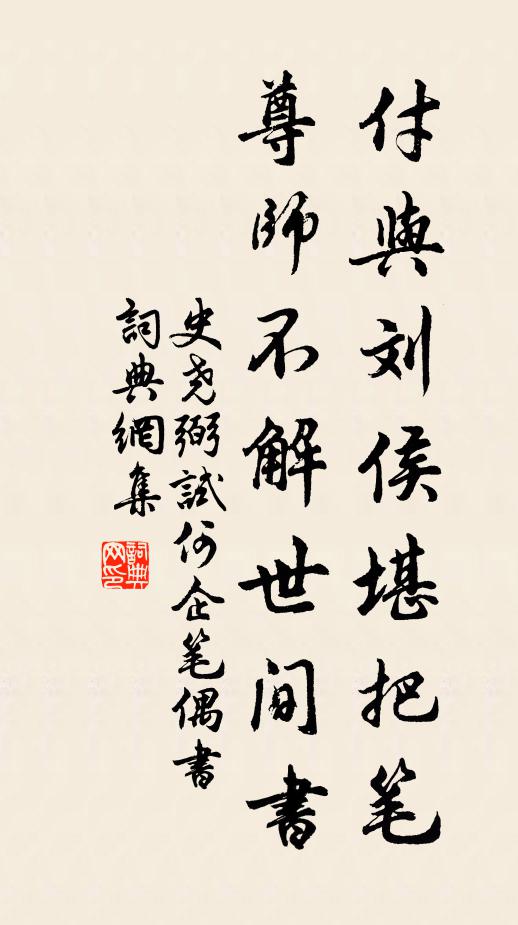 付與刘侯堪把笔
尊師不解世间書
史尧弼試何企笔偶書
詞典網集
詞典
网印